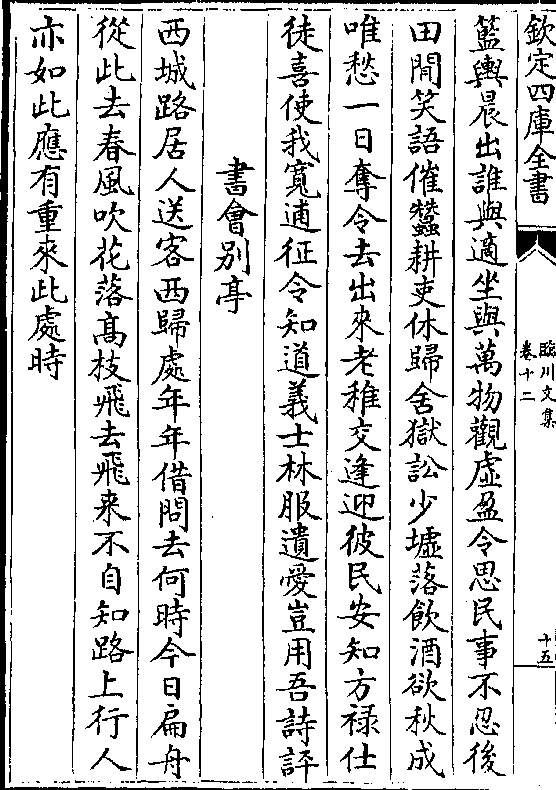 欽定四庫全書
臨川文集
卷十二
十五
籃輿晨出誰與適坐與萬物觀虛盈令思民事不忍後
田間笑語催蠶耕吏休歸舍獄訟少墟落飲酒欲秋成
唯愁一日奪令去出來老稚交逢迎彼民安知方禄仕
徒喜使我寬逋征令知道義士林服遺愛豈用吾詩評
書會別亭
西城路居人送客西歸處年年借問去何時今日扁舟
從此去春風吹花落髙枝飛去飛来不自知路上行人
亦如此應有重來此處時